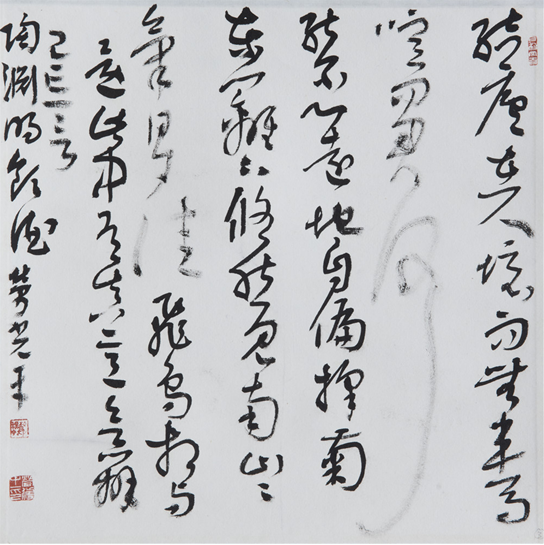 結廬在人境而無車馬
喧問君何
能尔心遠地自偏採菊
東籬下悠然見南山〻
氣日夕佳飛鳥相與
還此中有真意欲辨
已忘言
陶渊明飲酒